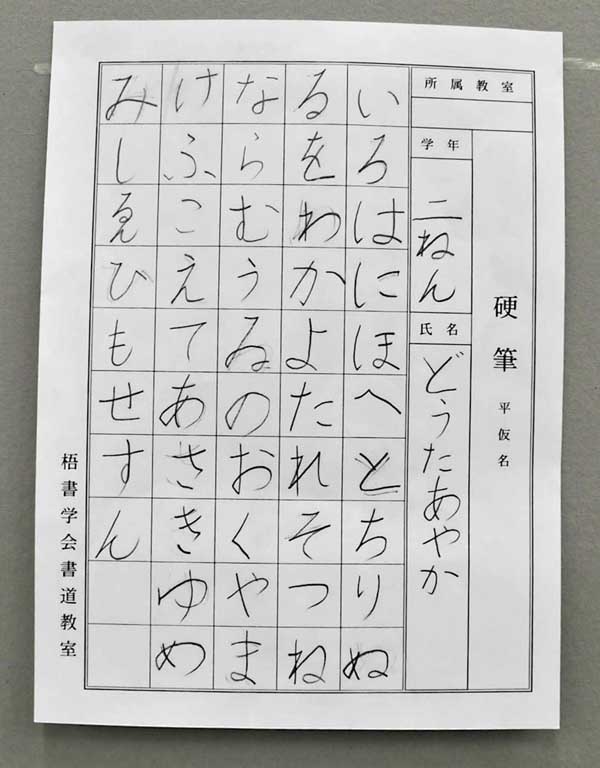 硬筆 平仮名
所属教室
学年
二ねん
氏名
どうたあやか
いろはにほへとちりぬ
るをわかよたれそつね
ならむうゐのおくやま
けふこえてあさきゆめ
みしゑひもせすん
梧書学会書道教室